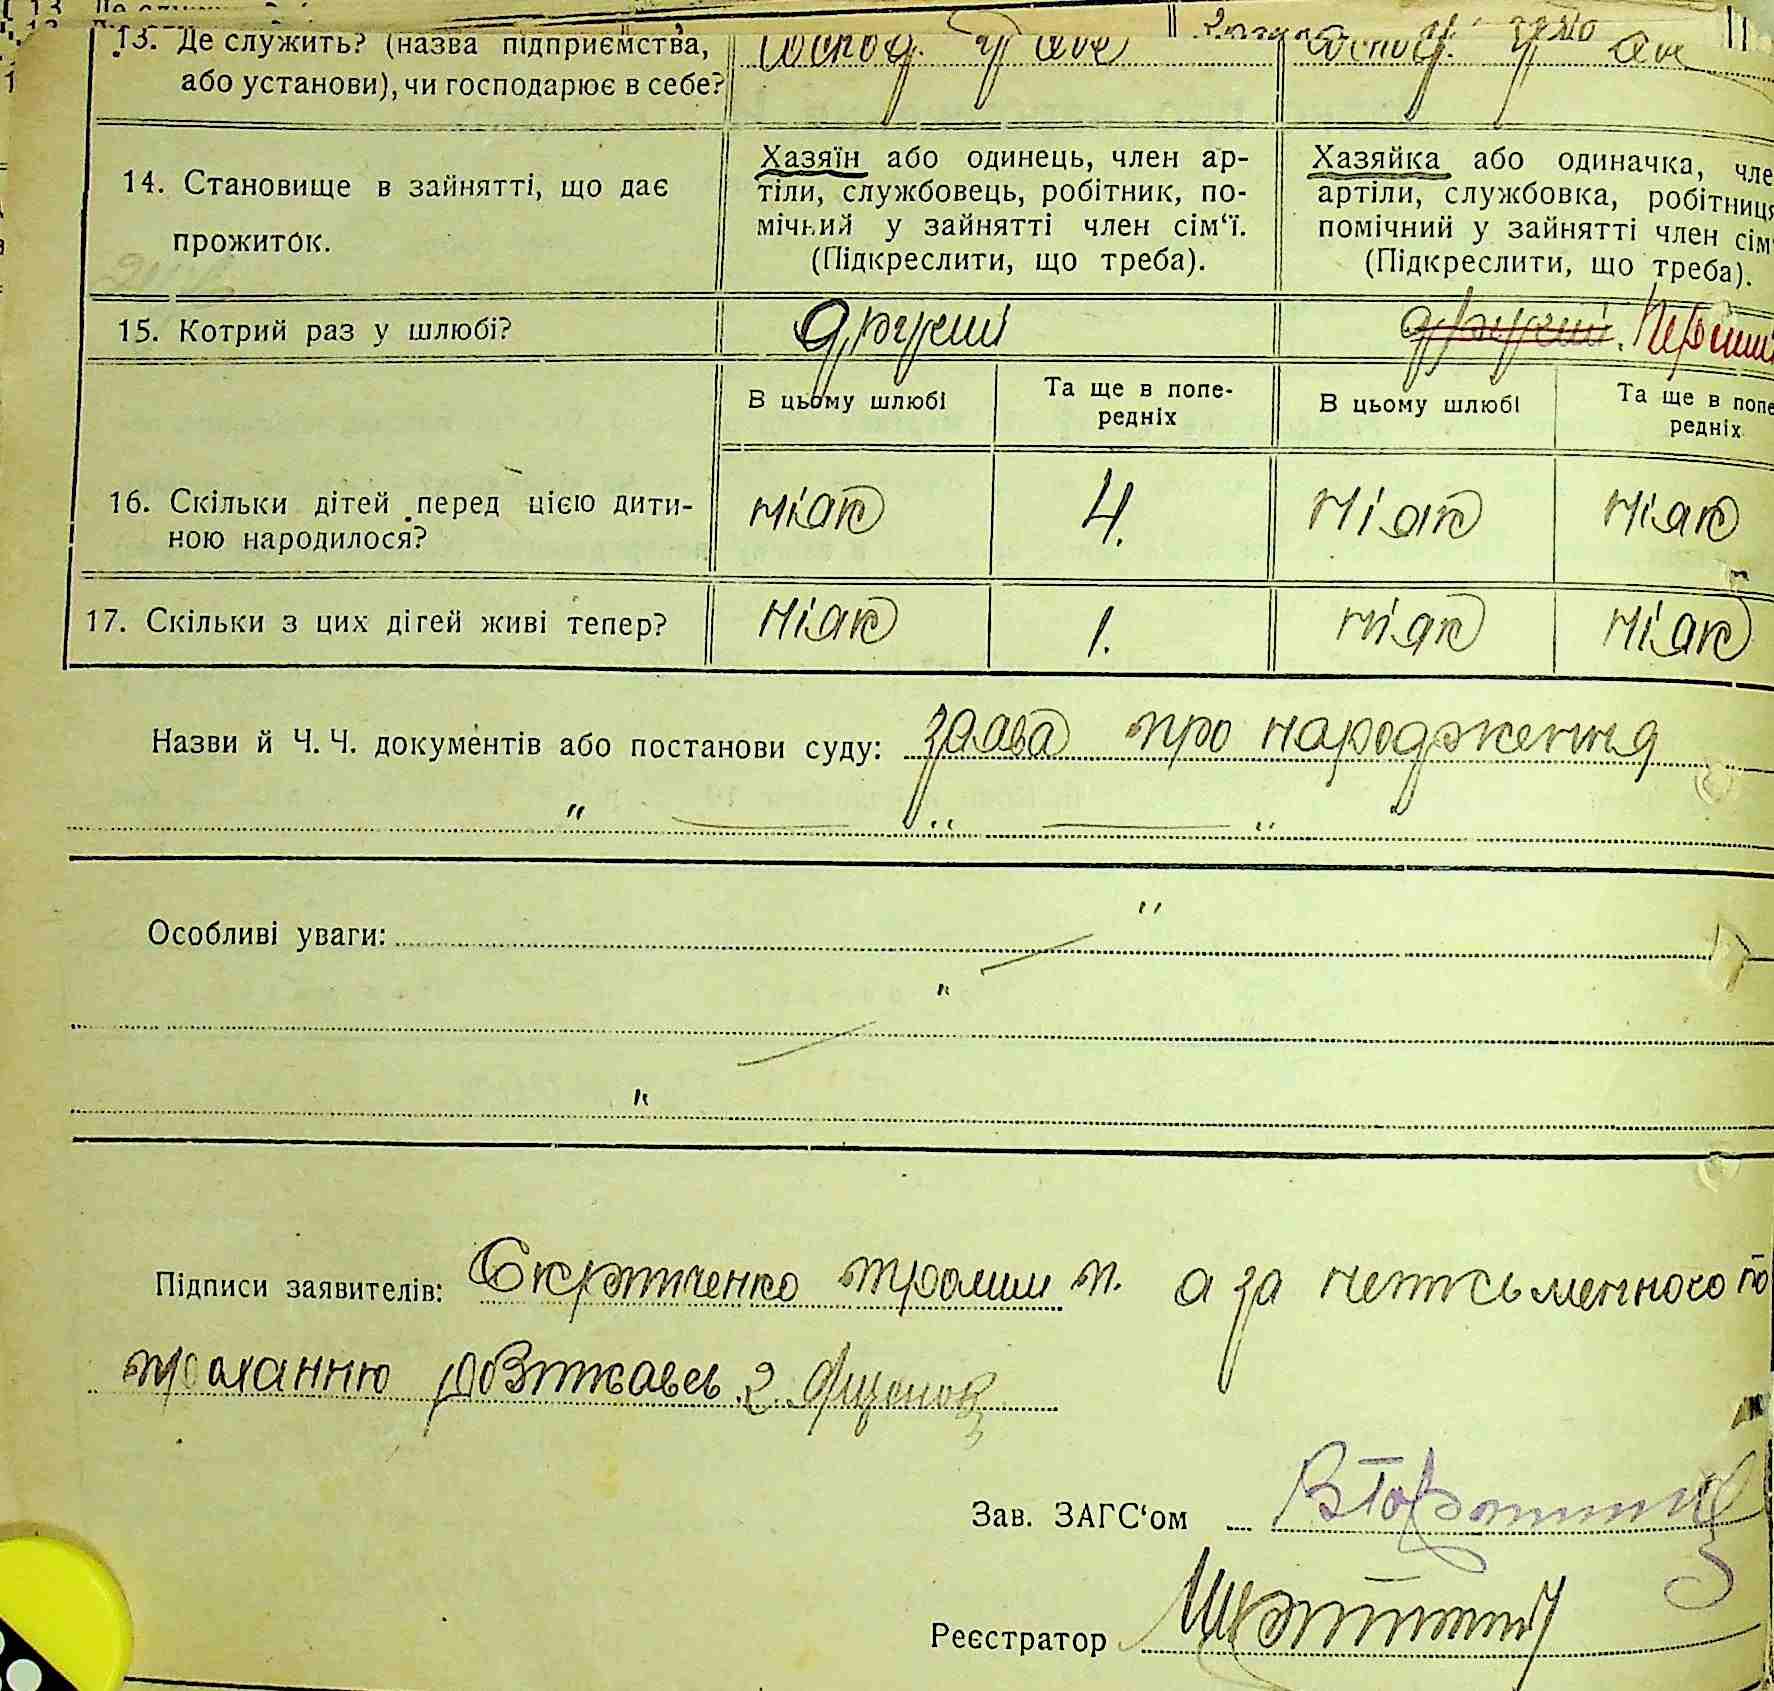 13. Де служить? (назва підприємства, або установи), чи господарює в себе?
14. Становище в зайнятті, що дає прожиток.
Хазяїн або одинець, член ар-
тіли, службовець, робітник, по-
мічний у зайнятті член сім‘ї.
(Підкреслити, що треба).
Хазяйка або одиначка, чле
артіли, службовка, робітниця
помічний у зайнятті член сім‘
(Підкреслити, що треба).
15. Котрий раз у шлюбі? другий другий. Перший
В цьому шлюбі
Та ще в попе-
редніх
В цьому шлюбі
Та ще в попе
редніх
16. Скільки дітей перед цією дити-
ною народилося?
ніяк 4. ніяк ніяк
17. Скільки з цих дітей живі тепер? ніяк 1. ніяк ніяк
Назви й Ч. Ч. документів або постанови суду: заява про народження
Особливі уваги:
Підписи заявителів: п. а за неписьменного по
проханню
Зав. ЗАГС‘ом
Реєстратор